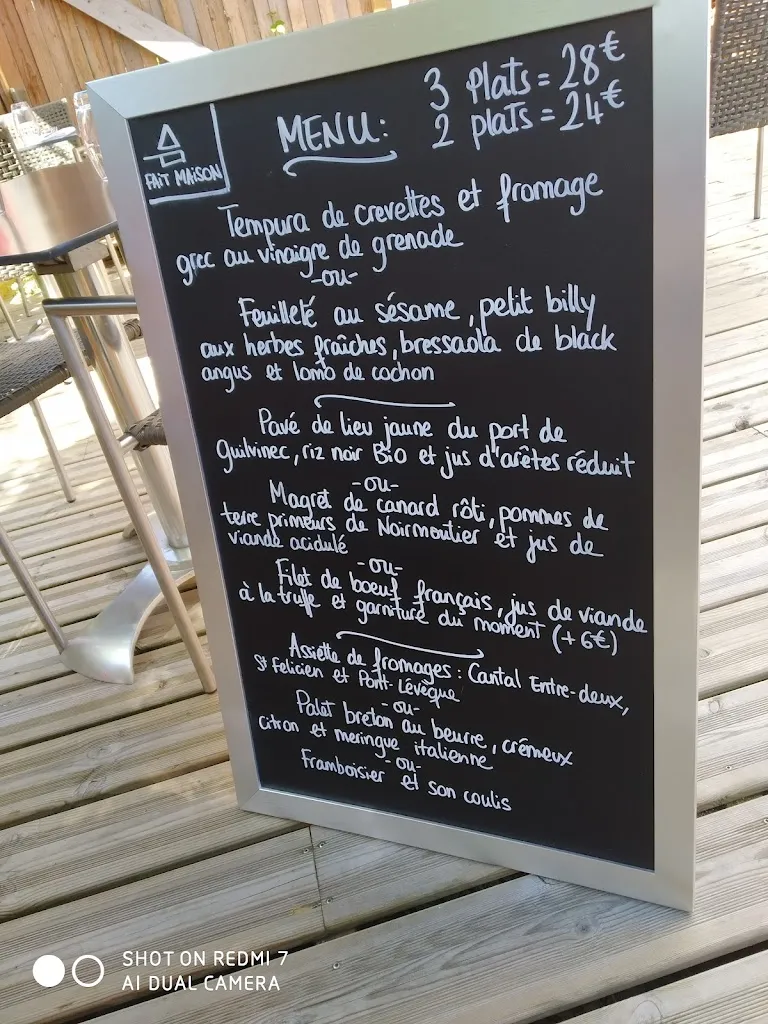 FAIT MAISON
MENU:
3 Plats = 28€
2 plats = 24€
Tempura de crevettes et fromage
grec au vinaigre de grenade
-ou-
Feuilleté au sésame, petit billy
aux herbes fraîches, bressaola de black
angus et lomo de cochon
Pavé de lieu jaune du port de
guilvinec, riz noir Bio et jus d'arêtes réduit
-ou-
Magret de canard rôti, pommes de
terre primeurs de Noirmoutier et jus de
viande acidulé
-ou-
Filet de boeuf français, jus de viande
à la truffe et garniture du moment (+6€)
Assiette de fromages : Cantal Entre-deux,
St Felicien et Pont-Lévêque
-ou-
Palet breton au beurre, crémeux
citron et meringue italienne
-ou-
Framboisier et son coulis
SHOT ON REDMI 7
AI DUAL CAMERA